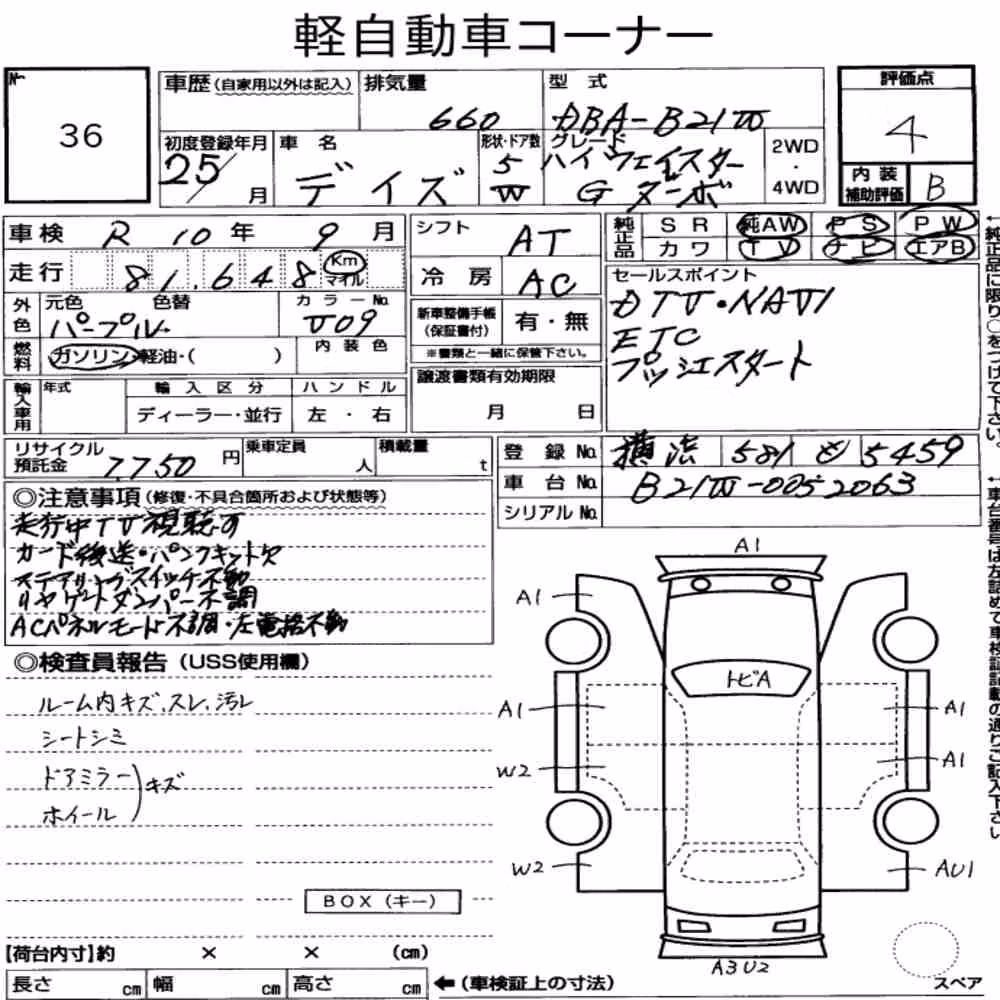 軽自動車コーナー
No. 36
車歴(自家用以外は記入)
排気量 660
型式 DBA-B21W
評価点 4
内装補助評価 B
初度登録年月 25/ 月
車名 デイズ
形状・ドア数 5 W
グレード ハイウェイスター Gターボ
2WD・4WD
車検 R 10年 9月
走行 81,648 Km マイル
シフト AT
冷房 AC
純正品 SR 純AW PS PW
カワ TV ナビ エアB
外色 元色 パープル 色替
カラーNo. V09
燃料 ガソリン・軽油・( )
内装色
新車整備手帳(保証書付) 有・無
※書類と一緒に保管下さい。
セールスポイント
DTV・NAVI
ETC
プッシュスタート
輸入車用 年式 輸入区分 ハンドル
ディーラー・並行 左・右
譲渡書類有効期限
月 日
リサイクル預託金 7,750円
乗車定員 人
積載量 t
登録No. 横浜 581 5459
車台No. B21W-0052063
シリアルNo.
◎注意事項(修復・不具合箇所および状態等)
走行中TV視聴可
カード後送・パンフキント欠
ステアリングスイッチ不動
リヤゲートダンパー不調
ACパネルモード不調・左電格不動
◎検査員報告(USS使用欄)
ルーム内キズ、スレ、汚レ
シートシミ
ドアミラー
ホイール
キズ
BOX(キー)
A1
A1
トビA
A1 A1
W2 A1
W2 AU1
A3U2
スペア
[荷台内寸]約 × × (cm)
長さ cm 幅 cm 高さ cm ←(車検証上の寸法)
↑純正品に限り○をつけて下さい。
↑車台番号は左詰めで車検証記載の通りご記入下さい